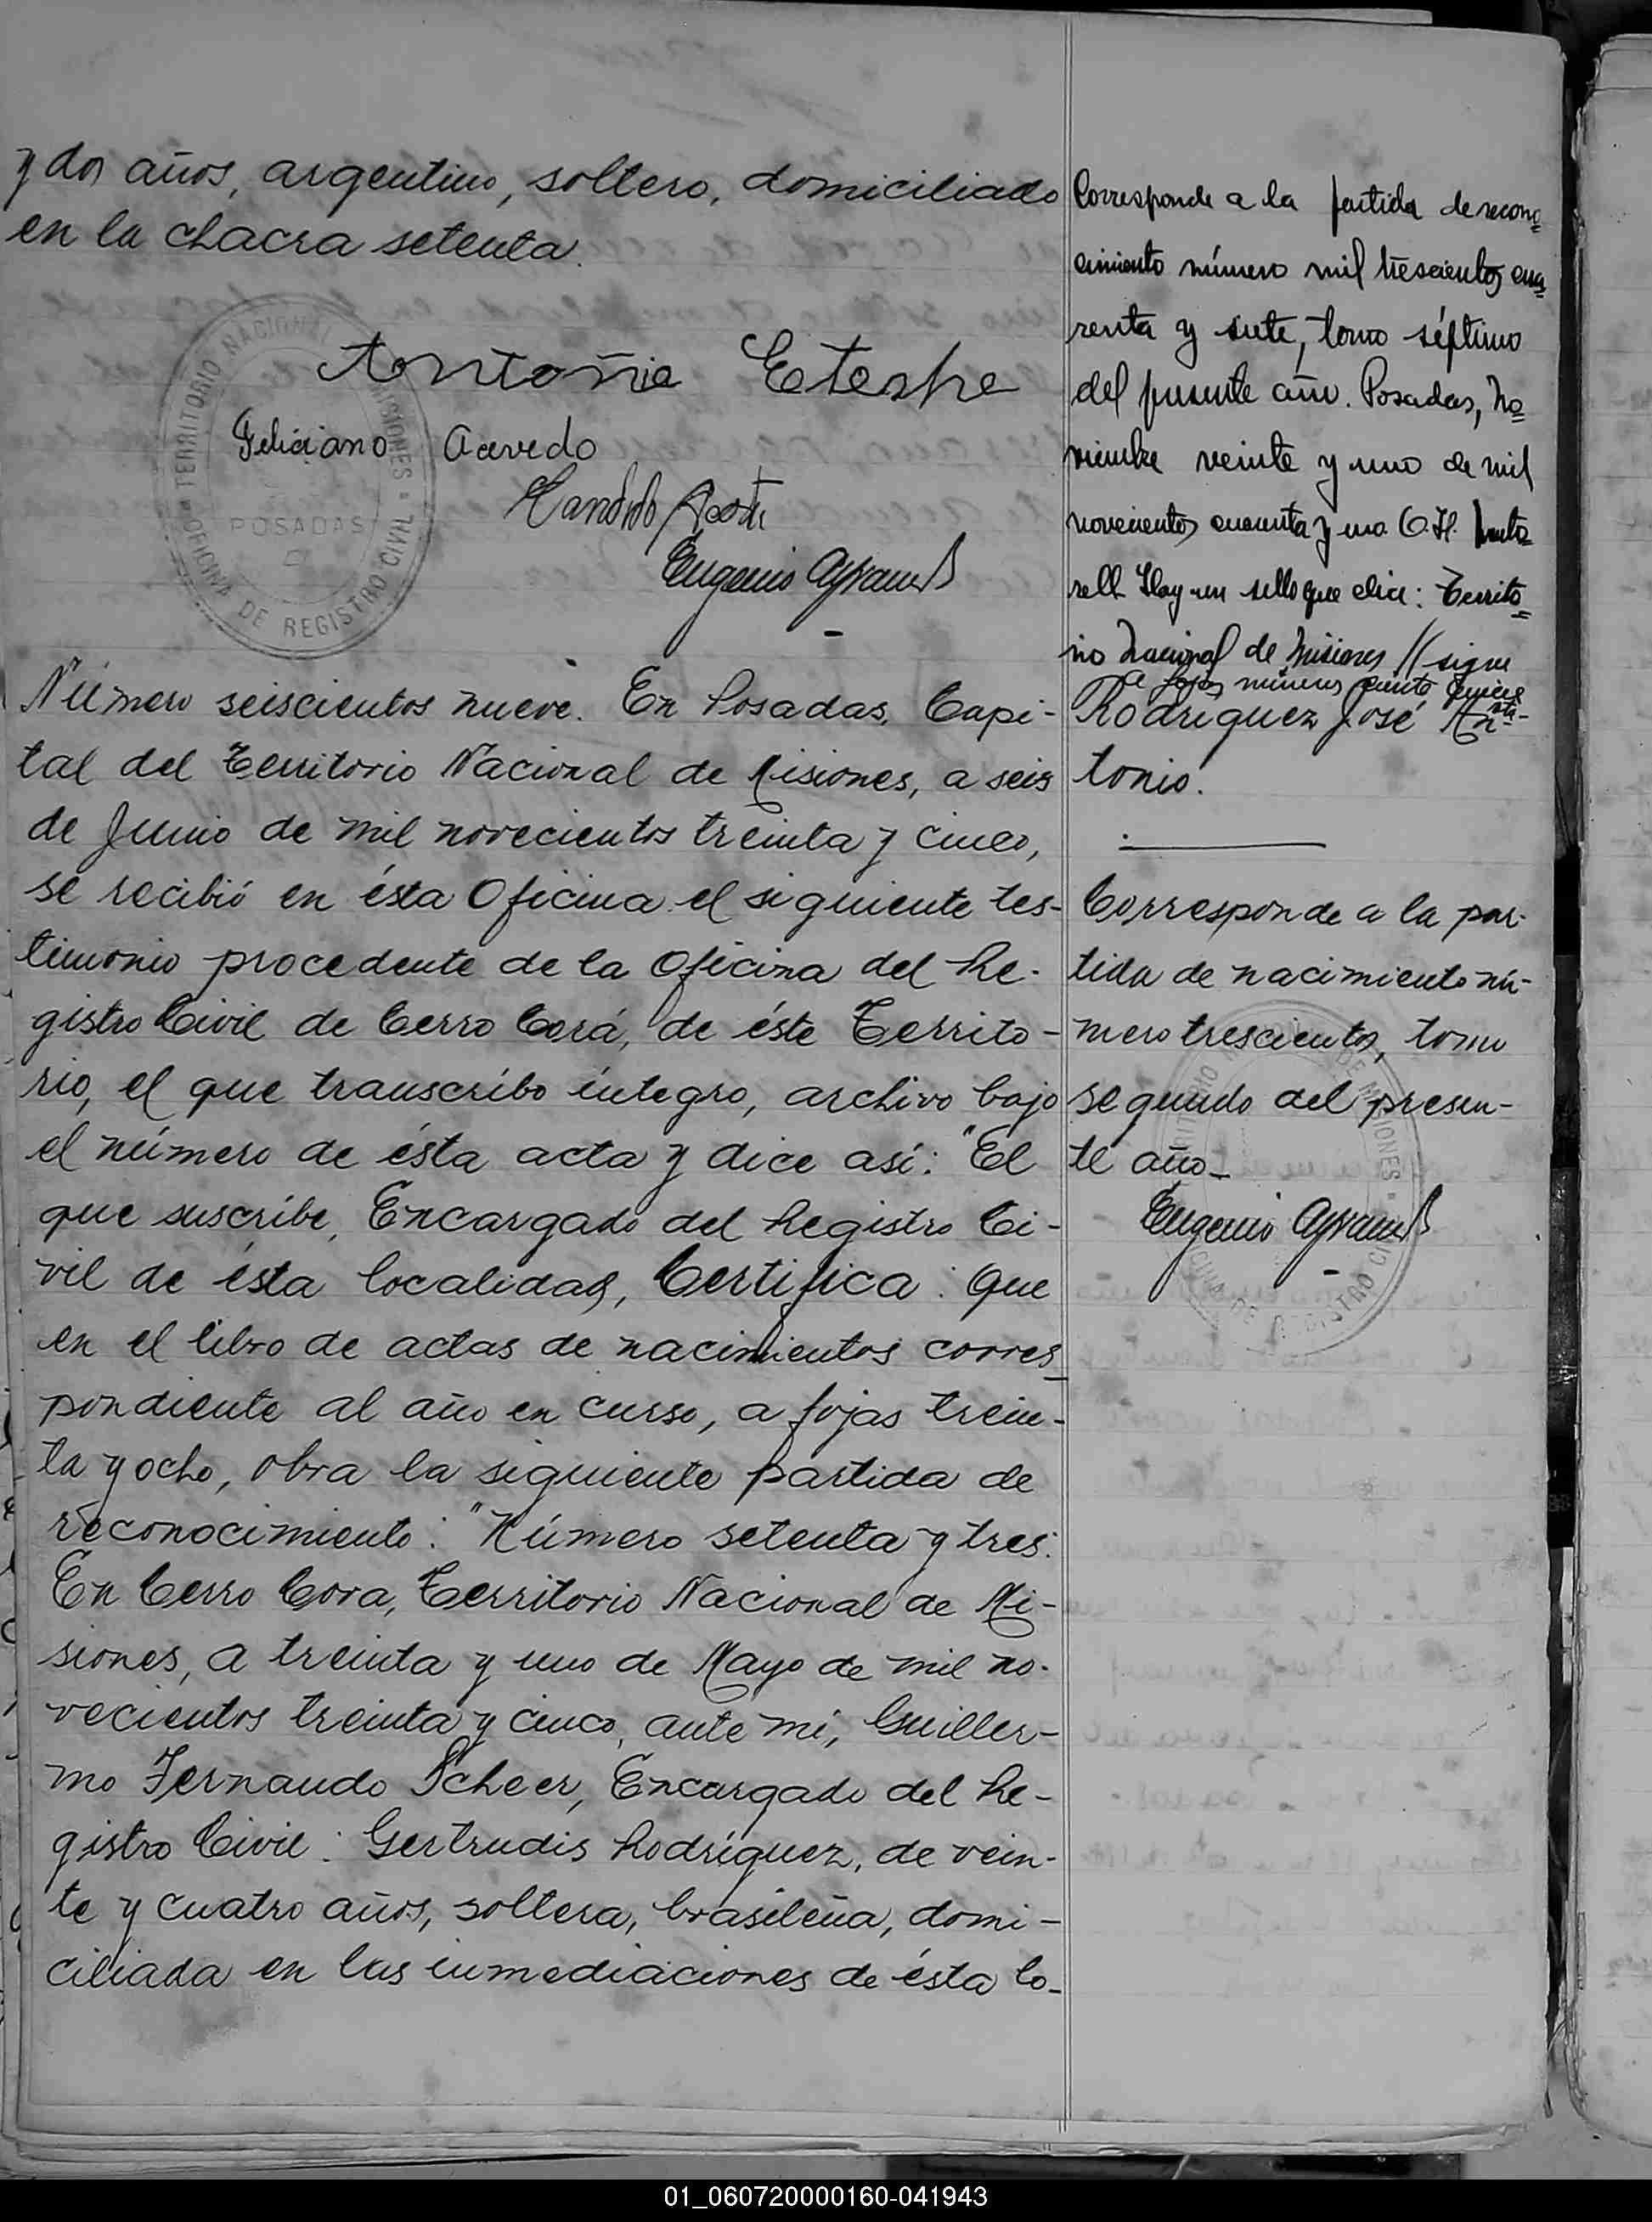 y dos años, argentino, soltero, domiciliado
en la chacra setenta.
TERRITORIO NACIONAL MISIONES
POSADAS
OFICINA DE REGISTRO CIVIL
Antoñia
Feliciano Acevedo
Candido Acosta
Eugenio
Número seiscientos nueve. En Posadas, Capi-
tal del Territorio Nacional de Misiones, a seis
de Junio de mil novecientos treinta y cinco,
se recibió en ésta Oficina el siguiente tes-
timonio procedente de la Oficina del Re-
gistro Civil de Cerro Corá, de éste Territo-
rio, el que transcribo íntegro, archivo bajo
el número de ésta acta y dice así: "El
que suscribe, Encargado del Registro Ci-
vil de ésta localidad, Certifica: Que
en el libro de actas de nacimientos corres-
pondiente al año en curso, a fojas trein-
ta y ocho, obra la siguiente partida de
reconocimiento: "Número setenta y tres:
En Cerro Cora, Territorio Nacional de Mi-
siones, a treinta y uno de Mayo de mil no-
vecientos treinta y cinco, ante mí, Guiller-
mo Fernando Scheer, Encargado del Re-
gistro Civil: Gertrudis Rodríguez, de vein-
te y cuatro años, soltera, brasileña, domi-
ciliada en las inmediaciones de ésta lo-
Corresponde a la partida de recono-
cimiento número mil trescientos cua-
renta y siete, tomo séptimo
del presente año. Posadas, No-
viembre veinte y uno de mil
novecientos cuarenta y uno. O.H.
Hay un sello que dice: Territo-
rio Nacional de Misiones //sigue
a fojas número ciento
Rodríguez José An-
tonio.
Corresponde a la par-
tida de nacimiento nú-
mero trescientos, tomo
segundo del presen-
te año_
Eugenio
DE MISIONES
OFICINA DE REGISTRO CIVIL
01_060720000160-041943